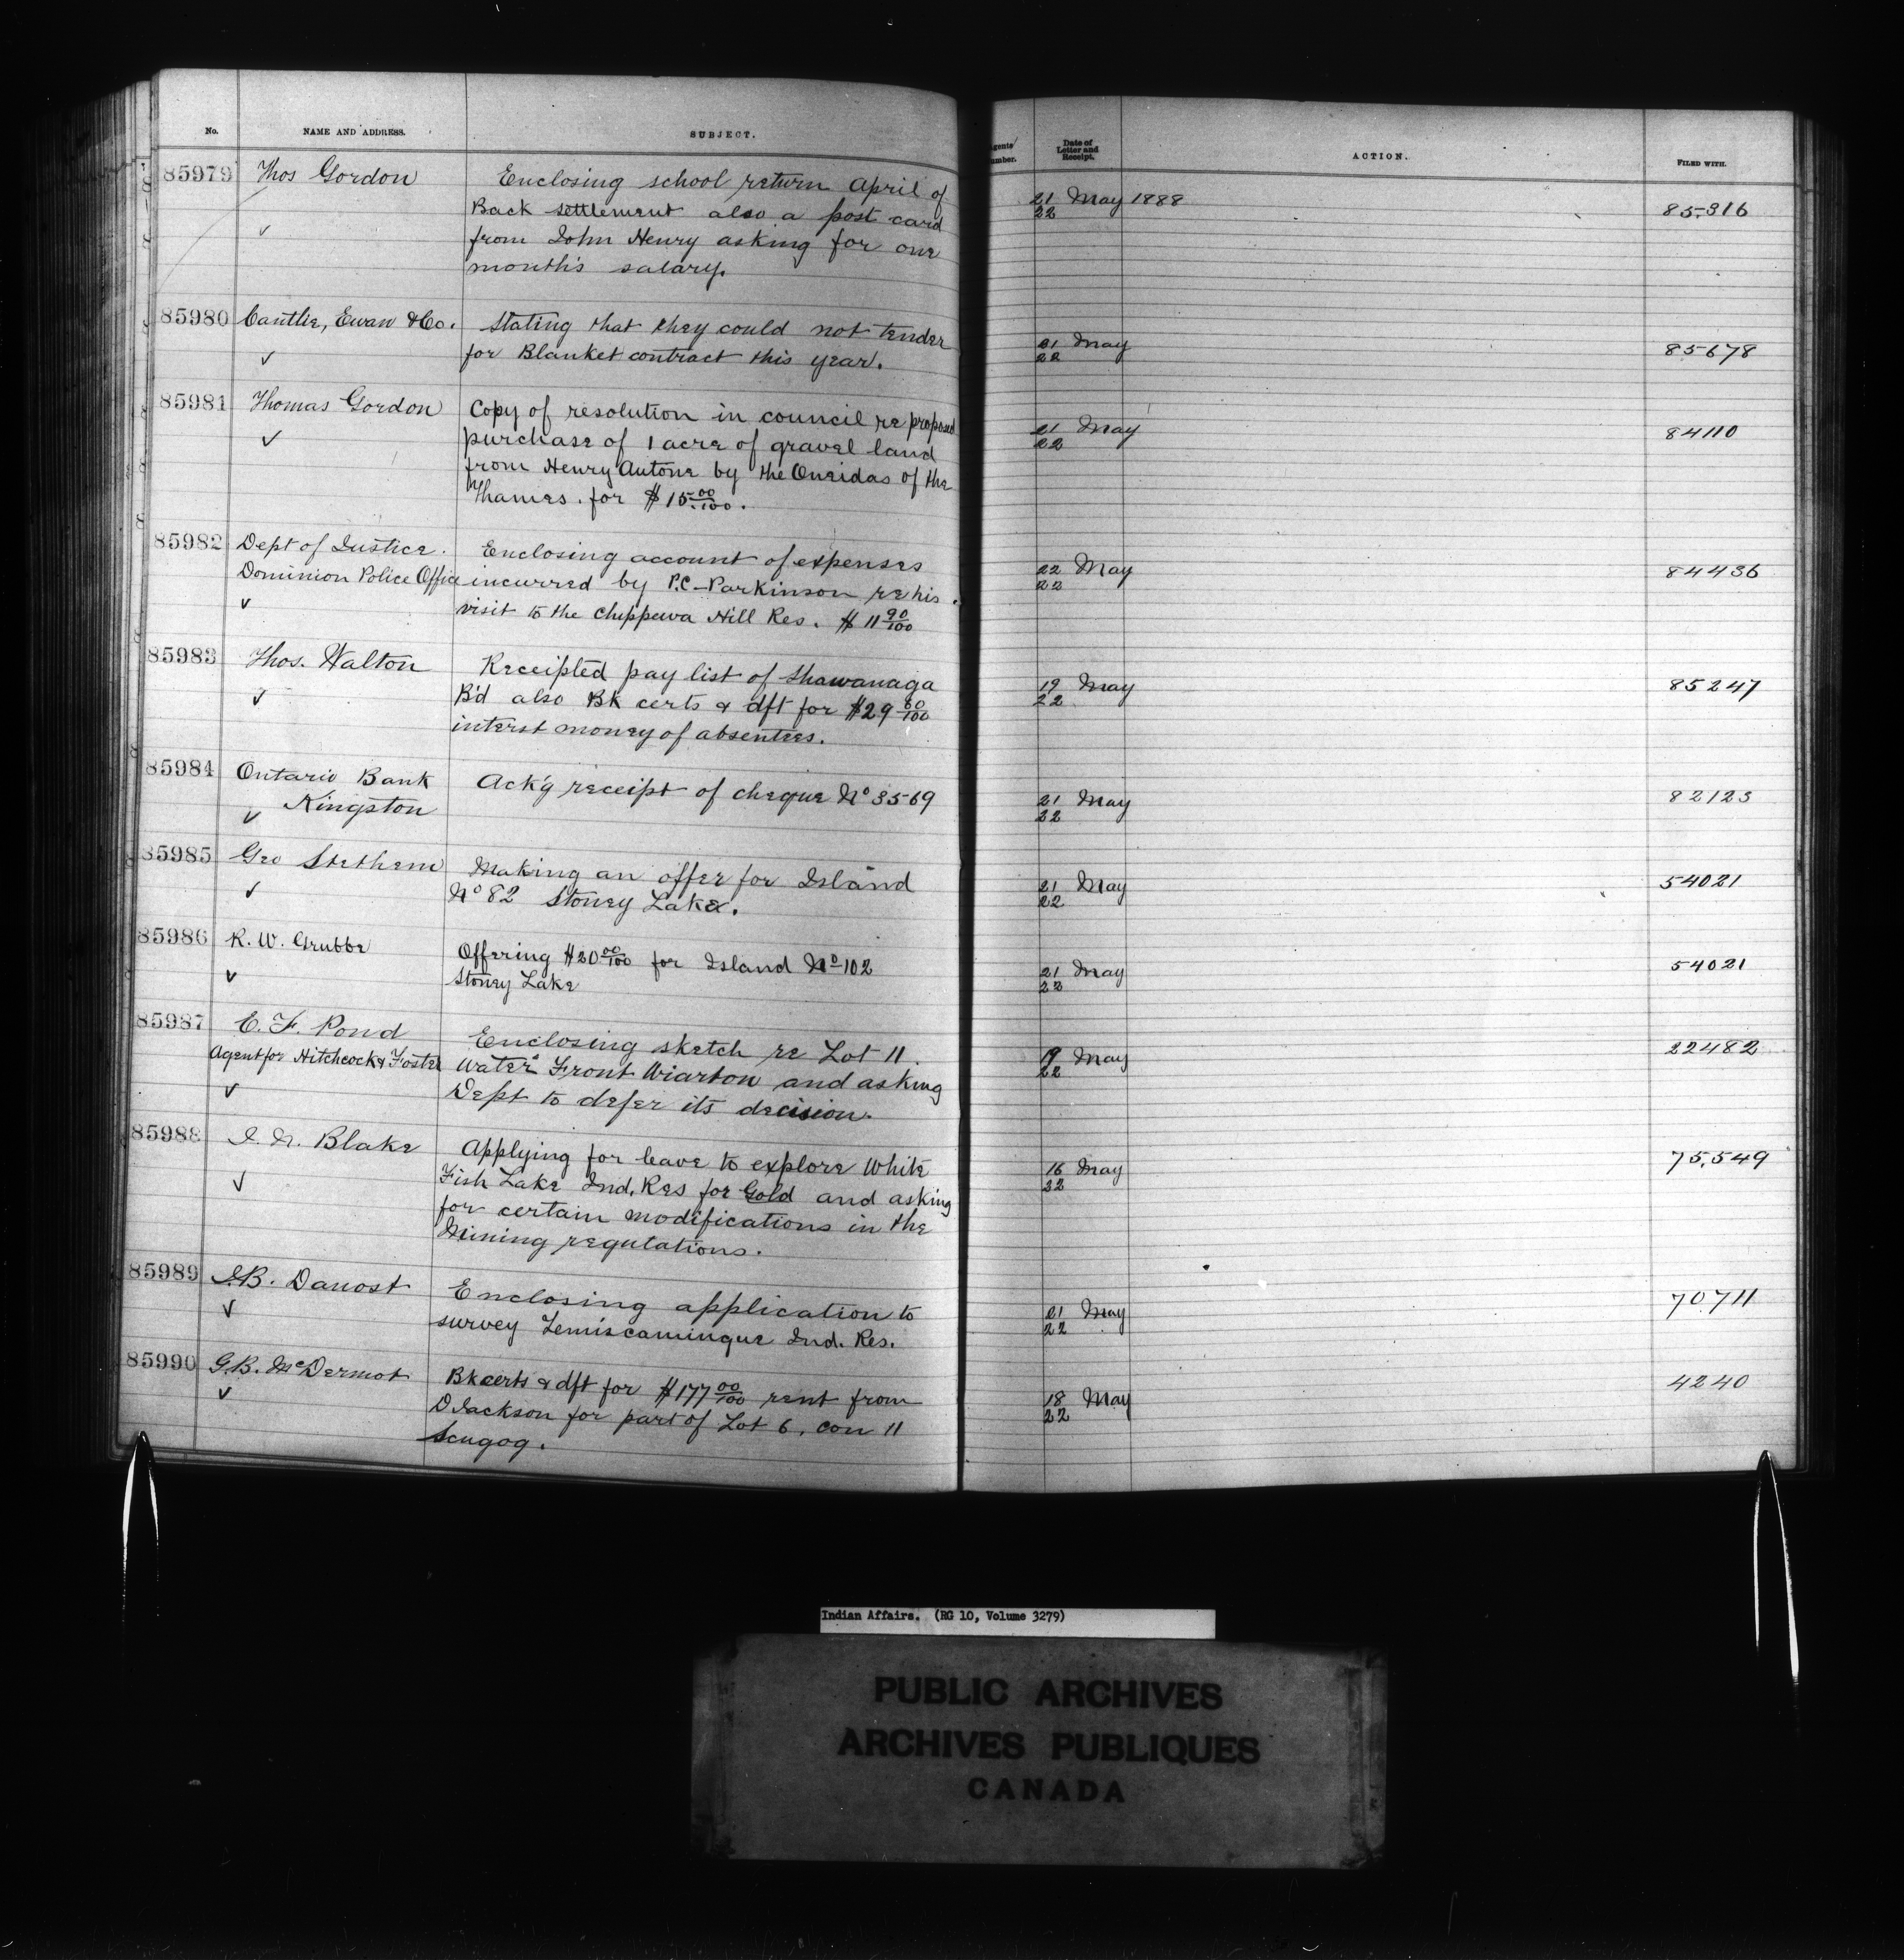 No. NAME AND ADDRESS. SUBJECT. Date of Letter and Receipt. ACTION. FILED WITH.
85979 Thos Gordon Enclosing school return April of 21 May 1888 85,316
Back settlement also a post card 22
✓ from John Henry asking for one
month's salary.
85980 Cantlie, Ewan & Co. Stating that they could not tender 21 May 85678
✓ for Blanket contract this year. 22
85981 Thomas Gordon Copy of resolution in council re proposed 21 May 84110
✓ purchase of 1 acre of gravel land 22
from Henry Antone by the Oneidas of the
Thames. for $15 00/100.
85982 Dept of Justice. Enclosing account of expenses 22 May 84436
Dominion Police Office incurred by P.C. Parkinson re his 22
✓ visit to the Chippewa Hill Res. $11 90/100
85983 Thos. Walton Receipted pay list of Shawanaga 19 May 85247
✓ B'd also Bk certs & dft for $29 80/100 22
interst money of absentees.
85984 Ontario Bank Ack'g receipt of cheque No 3569 21 May 82123
✓ Kingston 22
85985 Geo Stethem Making an offer for Island 21 May 54021
✓ No 82 Stoney Lake. 22
85986 R. W. Grubbe Offering $20 00/100 for Island No 102 21 May 54021
✓ Stoney Lake 22
85987 E. F. Pond Enclosing sketch re Lot 11. 19 May 22482
Agent for Hitchcock & Foster Water Front Wiarton and asking 22
✓ Dept to defer its decision.
85988 J. N. Blake Applying for leave to explore White 16 May 75,549
✓ Fish Lake Ind. Res for Gold and asking 22
for certain modifications in the
Mining regulations.
85989 J.B. Danost Enclosing application to 21 May 70711
✓ survey Temiscamingue Ind. Res. 22
85990 G.B. McDermot Bk certs & dft for $177 00/100 rent from 18 May 4240
✓ D Jackson for part of Lot 6, con 11 22
Scugog.
Indian Affairs. (RG 10, Volume 3279)
PUBLIC ARCHIVES
ARCHIVES PUBLIQUES
CANADA